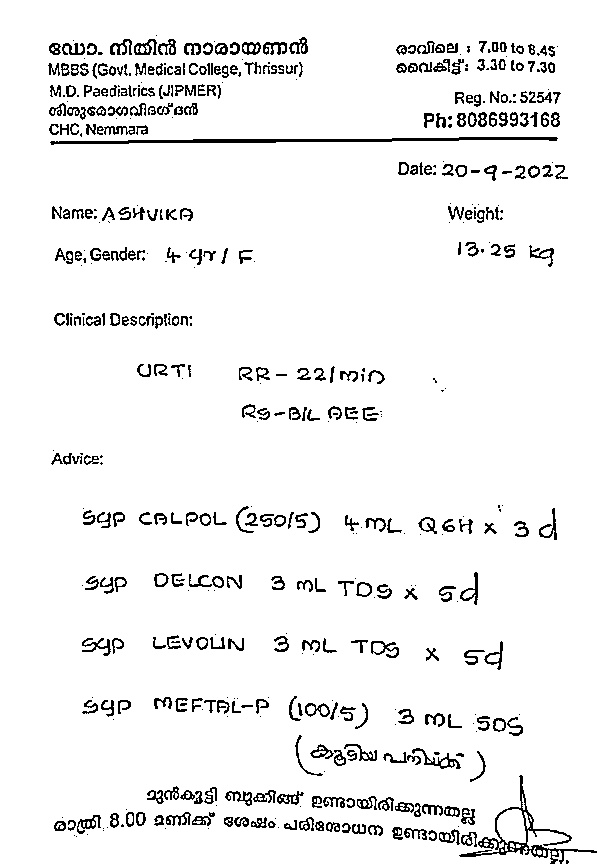 ഡോ. നിതിൻ നാരായണൻ
MBBS (Govt. Medical College, Thrissur)
M.D. Paediatrics (JIPMER)
ശിശുരോഗവിദഗ്ദൻ
CHC, Nemmara
രാവിലെ : 7.00 to 8.45
വൈകീട്ട് : 3.30 to 7.30
Reg. No.: 52547
Ph: 8086993168
Date: 20-9-2022
Name: ASHVIKA
Weight:
Age, Gender: 4 yr / F
13.25 kg
Clinical Description:
URTI RR - 22/min
RS - B/L AEE
Advice:
Syp CALPOL (250/5) 4 ML Q6H x 3 d
Syp DELCON 3 ML TDS x 5d
Syp LEVOLIN 3 ML TDS x 5d
Syp MEFTAL-P (100/5) 3 ML SOS
(കൂടിയ പനിയ്ക്ക്)
മുൻകൂട്ടി ബുക്കിങ്ങ് ഉണ്ടായിരിക്കുന്നതല്ല
രാത്രി 8.00 മണിക്ക് ശേഷം പരിശോധന ഉണ്ടായിരിക്കുന്നതല്ല.